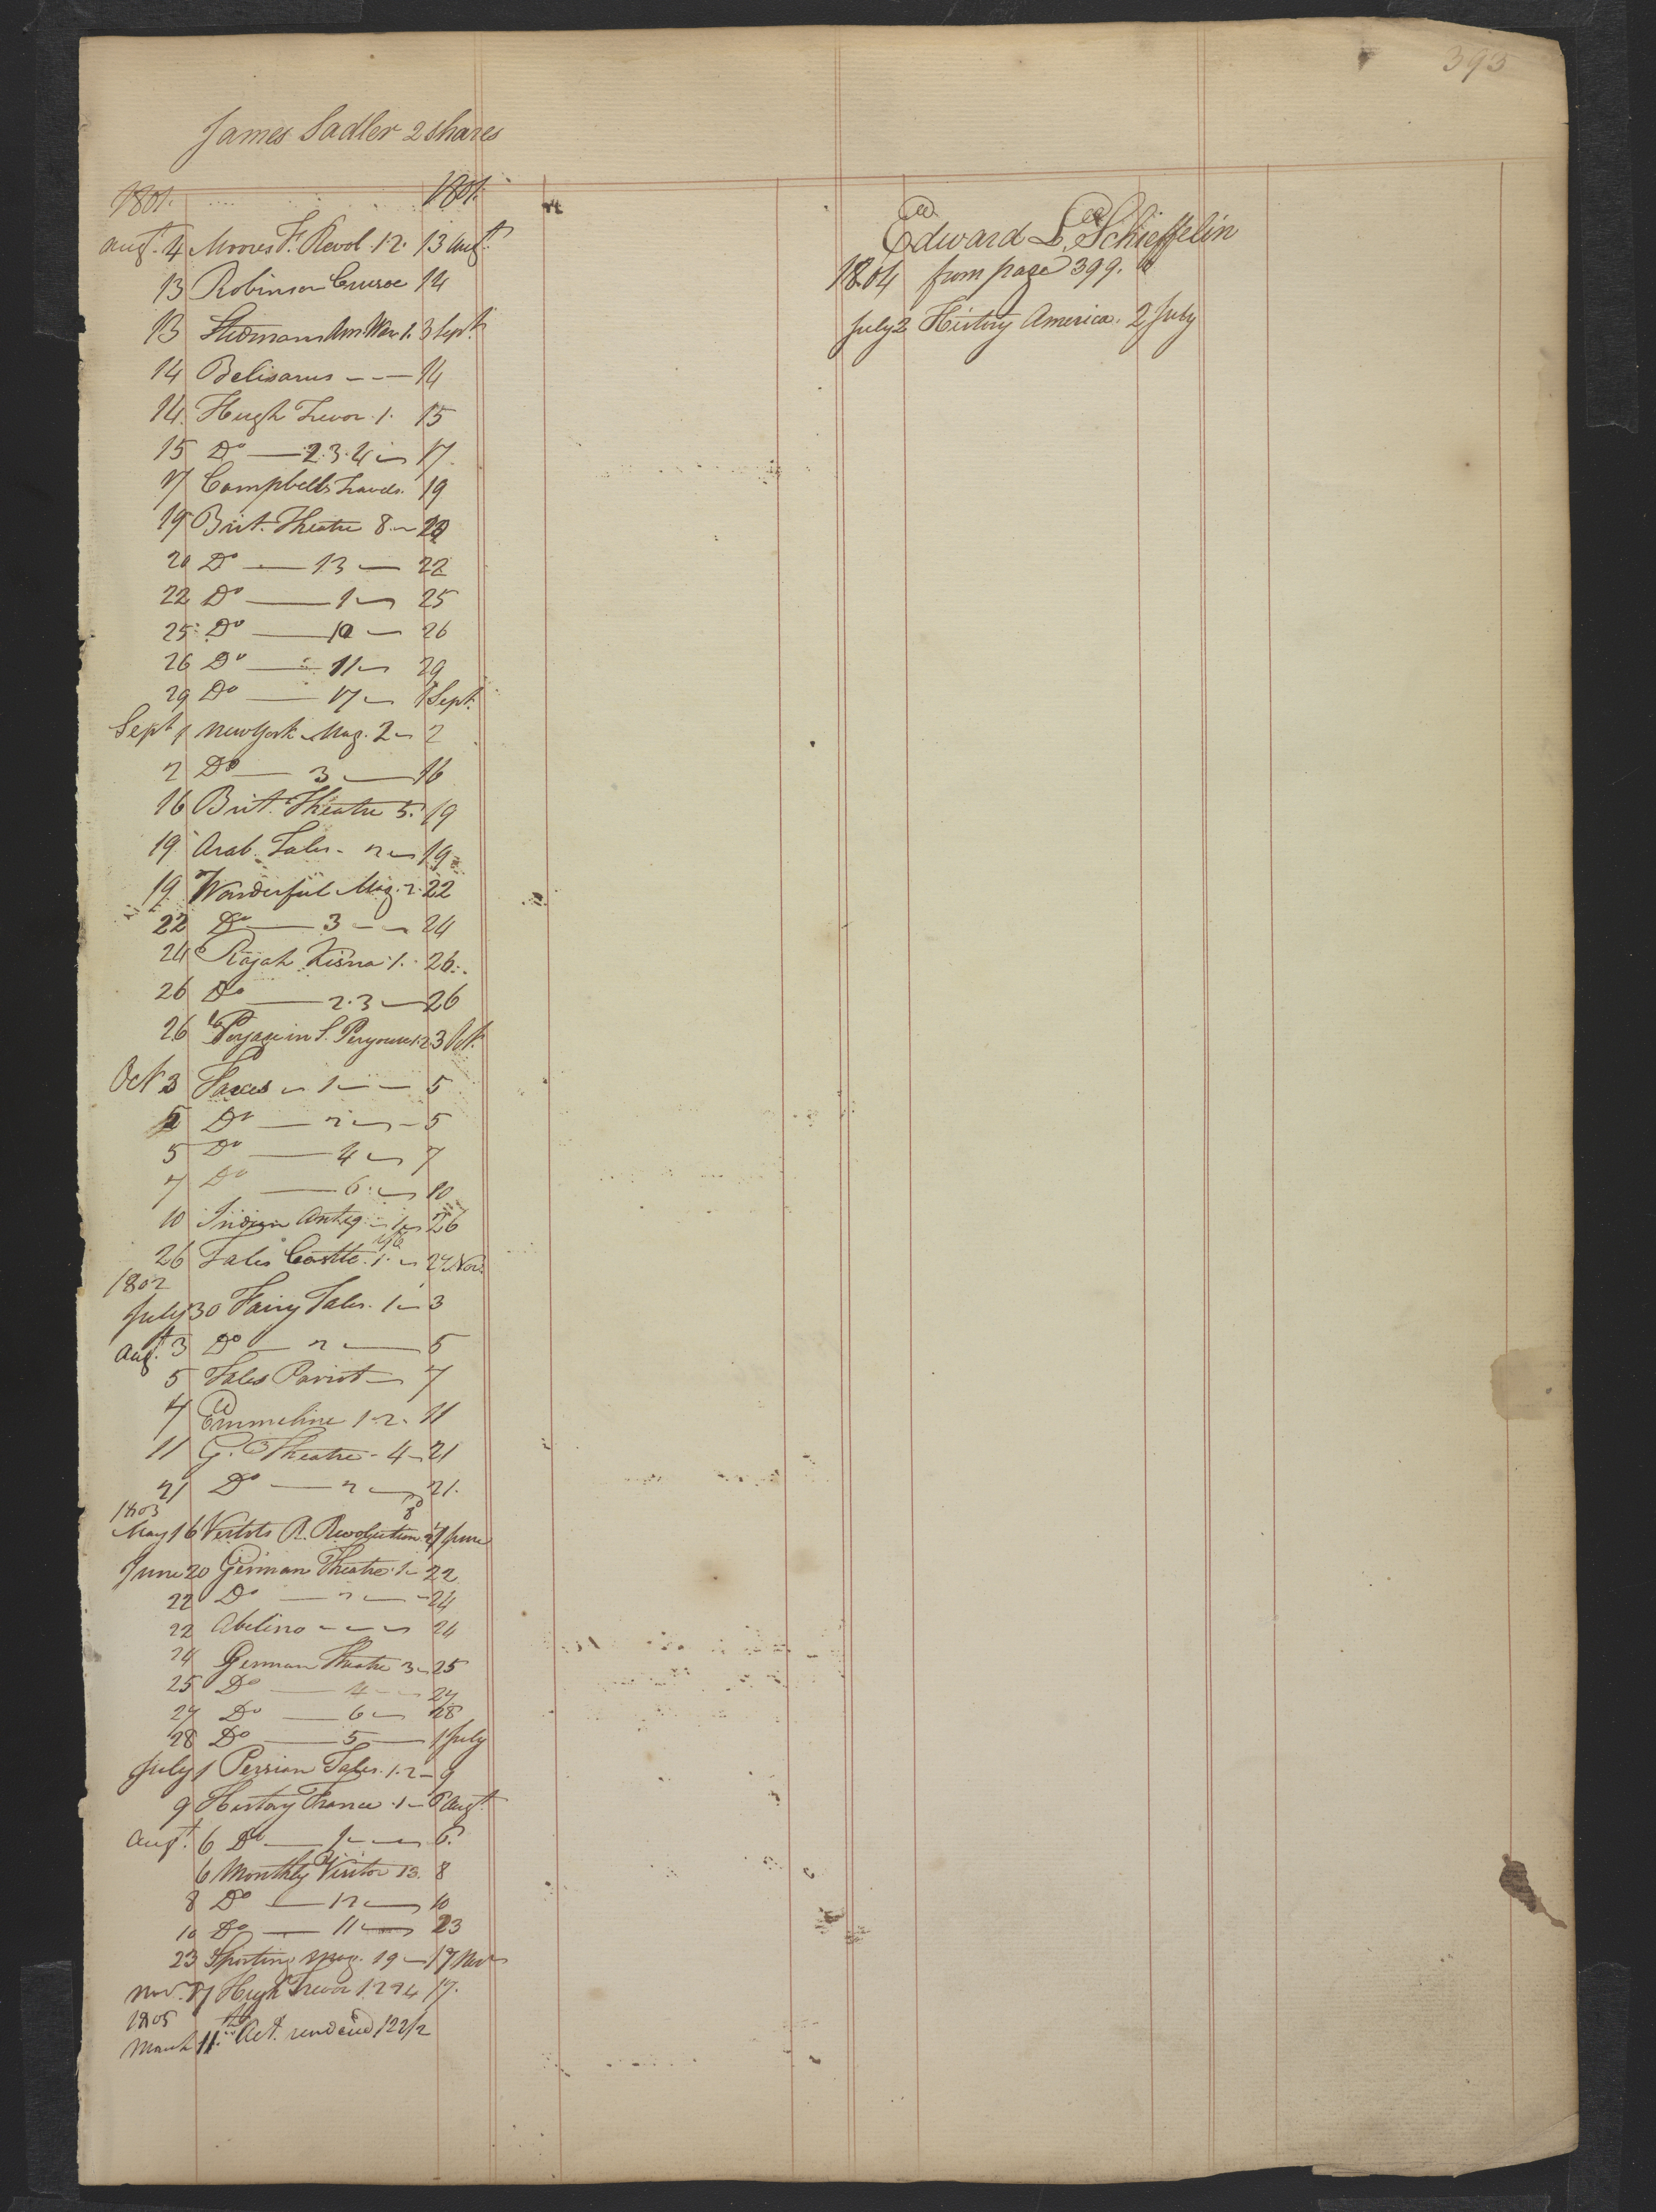 393
James Sadler 2 shares
1801. 1801.
Augt. 4 Moores F. Revol. 1.2. 13 Augt.
13 Robinson Crusoe 14
13 Stedmans Am. War 1. 3 Sept.
14 Belisarus - - — 14
14. Hugh Trevor. 1. 15
15 Do — 2.3.4 — 17
17 Campbells Travels. 19
19 Brit. Theatre 8. — 20
20 Do — 13 — 22
22 Do — 1 — 25
25 Do — 10 — 26
26 Do — 11 — 29
29 Do — 17 — 1 Sept.
Sept 1 New York Mag. 2 — 2
2 Do — 3 — 16
16 Brit. Theatre 5. 19
19 Arab. Tales - 2 — 19
19 Wonderful Mag. 2. 22
22 Do — 3 — 24
24 Rajah Kisna. 1. 26.
26 Do — 2.3 — 26
26 in S. 1.2 3 Oct.
Oct 3 — 1 — 5
5 Do — 2 — 5
5 Do — 4 — 7
7 Do — 6. — 10
10 Indian Antiq — 1 — 26
26 Tales Castle. 1. — 27 Nov.
1802
July 30 Fairy Tales. 1 — 3
Augt. 3 Do — 2 — 5
5 Tales Parrot — 7
7 Emmeline 1.2. 11
11 G. Theatre - 4 — 21
21 Do — 2 — 21.
1803
May 16 Vertots R. Revolution. June
June 20 German Theatre. 1 — 22
22 Do — 2 — 24
22 Abelino - - — 24
24 German Theatre 3 — 25
25 Do — 4 — 27
27 Do — 6 — 28
28 Do — 5 — 1 July
July 1 Persian Tales. 1.2 — 9
9 History France. 1 — 6 Augt.
Augt. 6 Do — 1 — 6.
6 Monthly Visitor 13. 8
8 Do — 12 — 10
10 Do — 11 — 23
23 Sporting Mag. 19 — 17 Nov
Nov. 17 Hugh Trevor 1.2 & 4 17.
1805
March 11th Act. rendered 122/2
Edward L. Schieffelin
1804 from page 399.
July 2 History America. 2 July